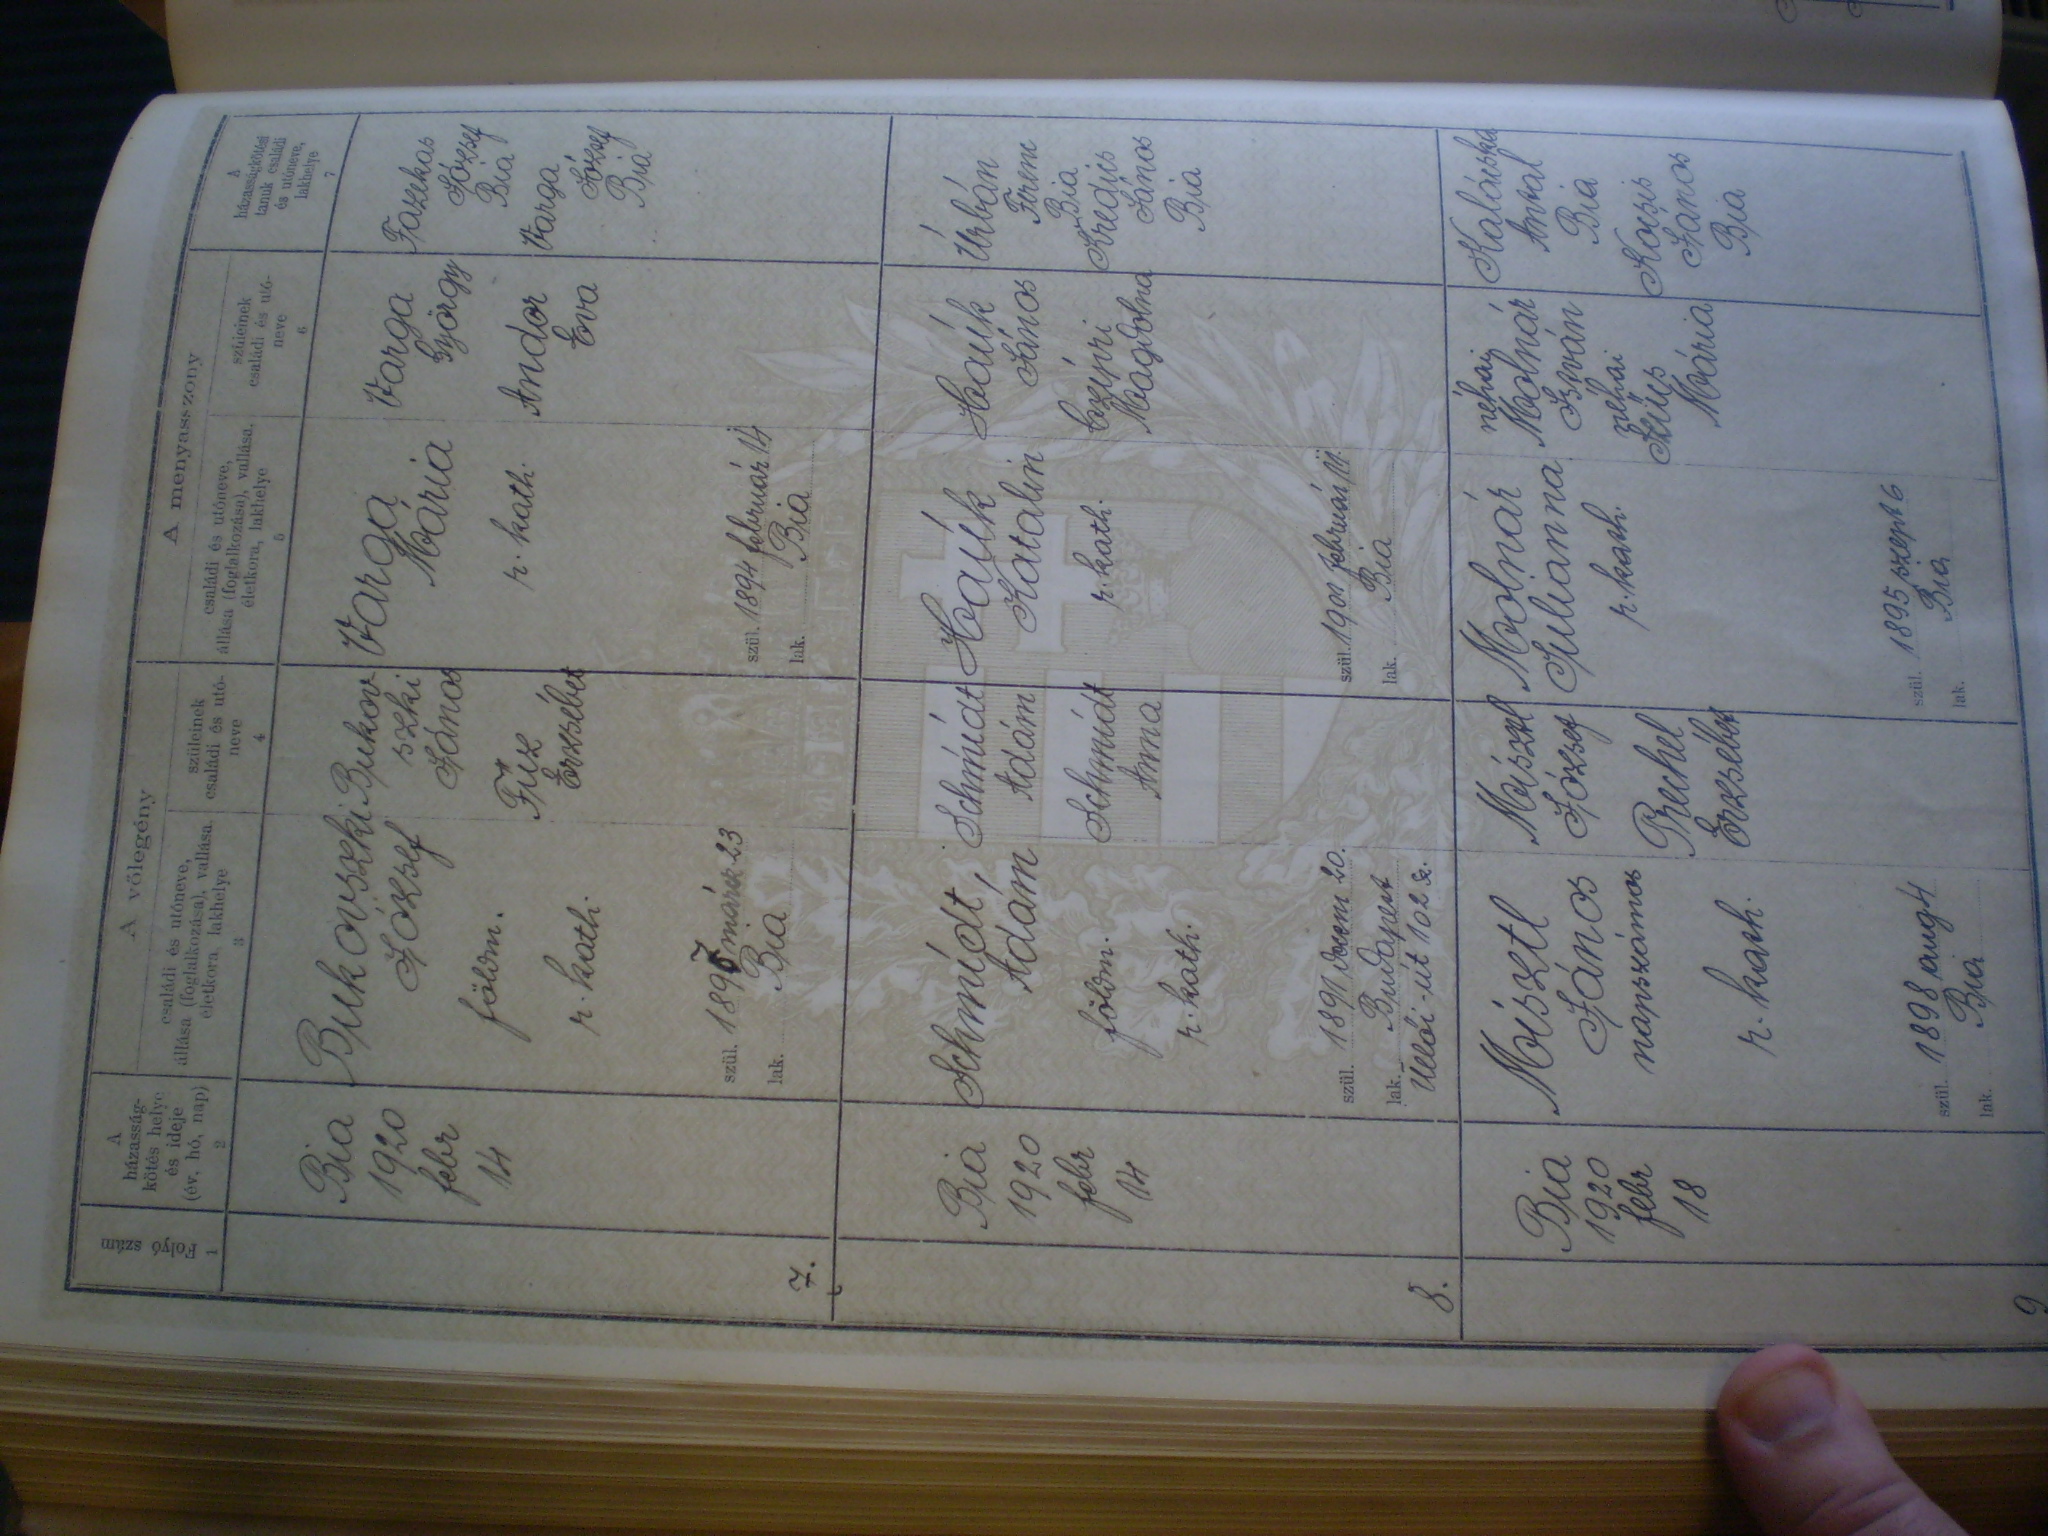 A vőlegény
A menyasszony
Folyó szám
A
házasság-
kötés helye
és ideje
(év, hó, nap)
családi és utóneve,
állása (foglalkozása), vallása,
életkora, lakhelye
szüleinek
családi és utó-
neve
családi és utóneve,
állása (foglalkozása), vallása,
életkora, lakhelye
szüleinek
családi és utó-
neve
A
házasságkötési
tanuk családi
és utóneve,
lakhelye
1
2
3
4
5
6
7
7.
Bia
1920
febr
14
Bukovszki
József
földm.
r. kath.
szül. 1897 márcz 23
lak. Bia
Bukov-
szki
János
Füz
Erzsébet
Varga
Mária
r. kath.
szül. 1894 február 14
lak. Bia
Varga
György
Andor
Éva
Fazekas
József
Bia
Varga
József
Bia
8.
Bia
1920
febr
14
Schmidt
Ádám
földm.
r. kath.
szül. 1891 decem 20.
lak. Budapest
Üllői-út 102 sz.
Schmidt
Ádám
Schmidt
Anna
Hauk
Katalin
r. kath.
szül. február
lak. Bia
Hauk
János
Magdolna
Urbán
Ferenc
Bia
János
Bia
9
Bia
1920
febr
18
János
napszámos
r. kath.
szül. 1898 aug 4
lak. Bia
József
Erzsébet
Molnár
Julianna
r. kath.
szül. 1895 szept 6
lak. Bia
néhai
Molnár
István
néhai
Szűcs
Mária
Antal
Bia
Kocsis
János
Bia